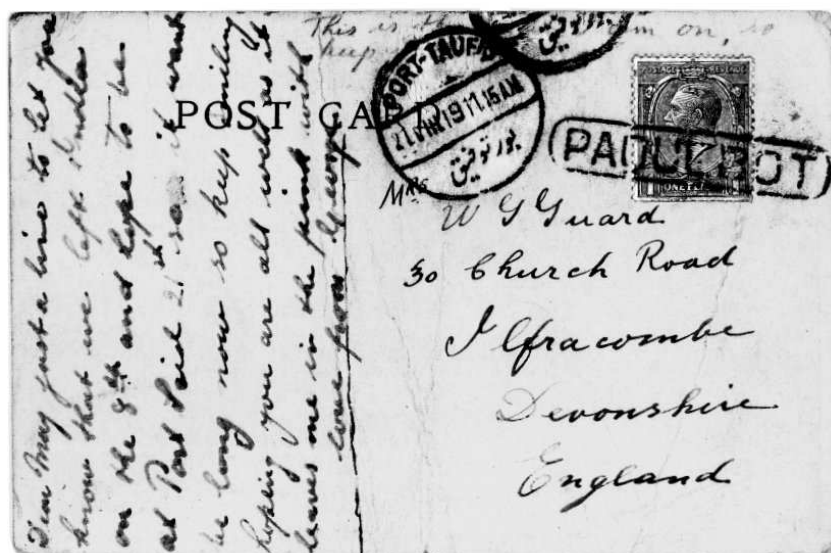 This is the on, so
keep
POST CARD
PORT-TAUFIQ
21 MR 19 11.15 AM
بور توفيق
PAQUEBOT
ONE PENNY
Mrs
W G Guard
30 Church Road
Ilfracombe
Devonshire
England
Dear May just a line to let you
know that we left India
on the 8th and hope to be
at Port Said 21st so it wont
be long now so keep smiling
hoping you are all well as it
leaves me in the pink with
love from